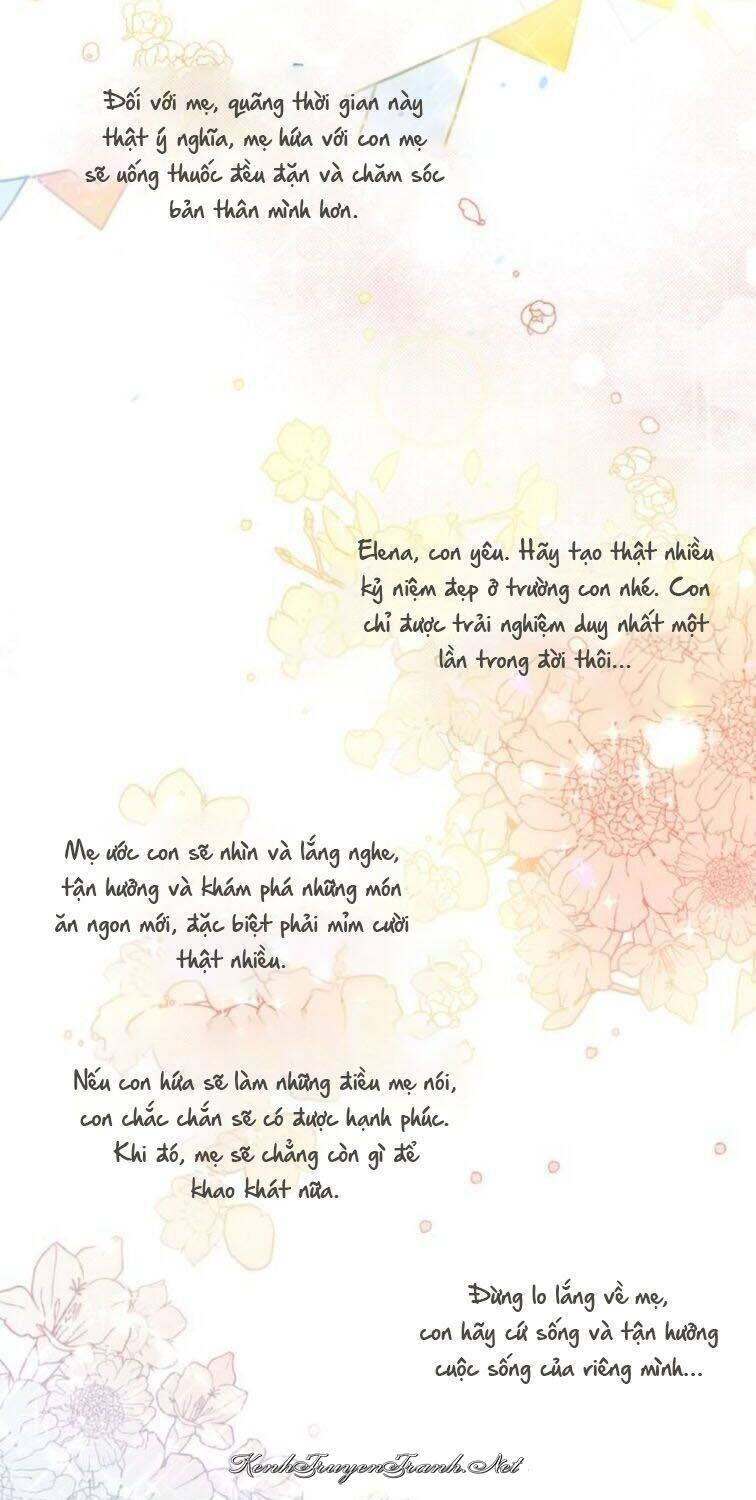 Đối với mẹ, quãng thời gian này
thật ý nghĩa, mẹ hứa với con mẹ
sẽ uống thuốc đều đặn và chăm sóc
bản thân mình hơn.
Elena, con yêu. Hãy tạo thật nhiều
kỷ niệm đẹp ở trường con nhé. Con
chỉ được trải nghiệm duy nhất một
lần trong đời thôi...
Mẹ ước con sẽ nhìn và lắng nghe,
tận hưởng và khám phá những món
ăn ngon mới, đặc biệt phải mỉm cười
thật nhiều.
Nếu con hứa sẽ làm những điều mẹ nói,
con chắc chắn sẽ có được hạnh phúc.
Khi đó, mẹ sẽ chẳng còn gì để
khao khát nữa.
Đừng lo lắng về mẹ,
con hãy cứ sống và tận hưởng
cuộc sống của riêng mình...
KenhTruyenTranh.Net